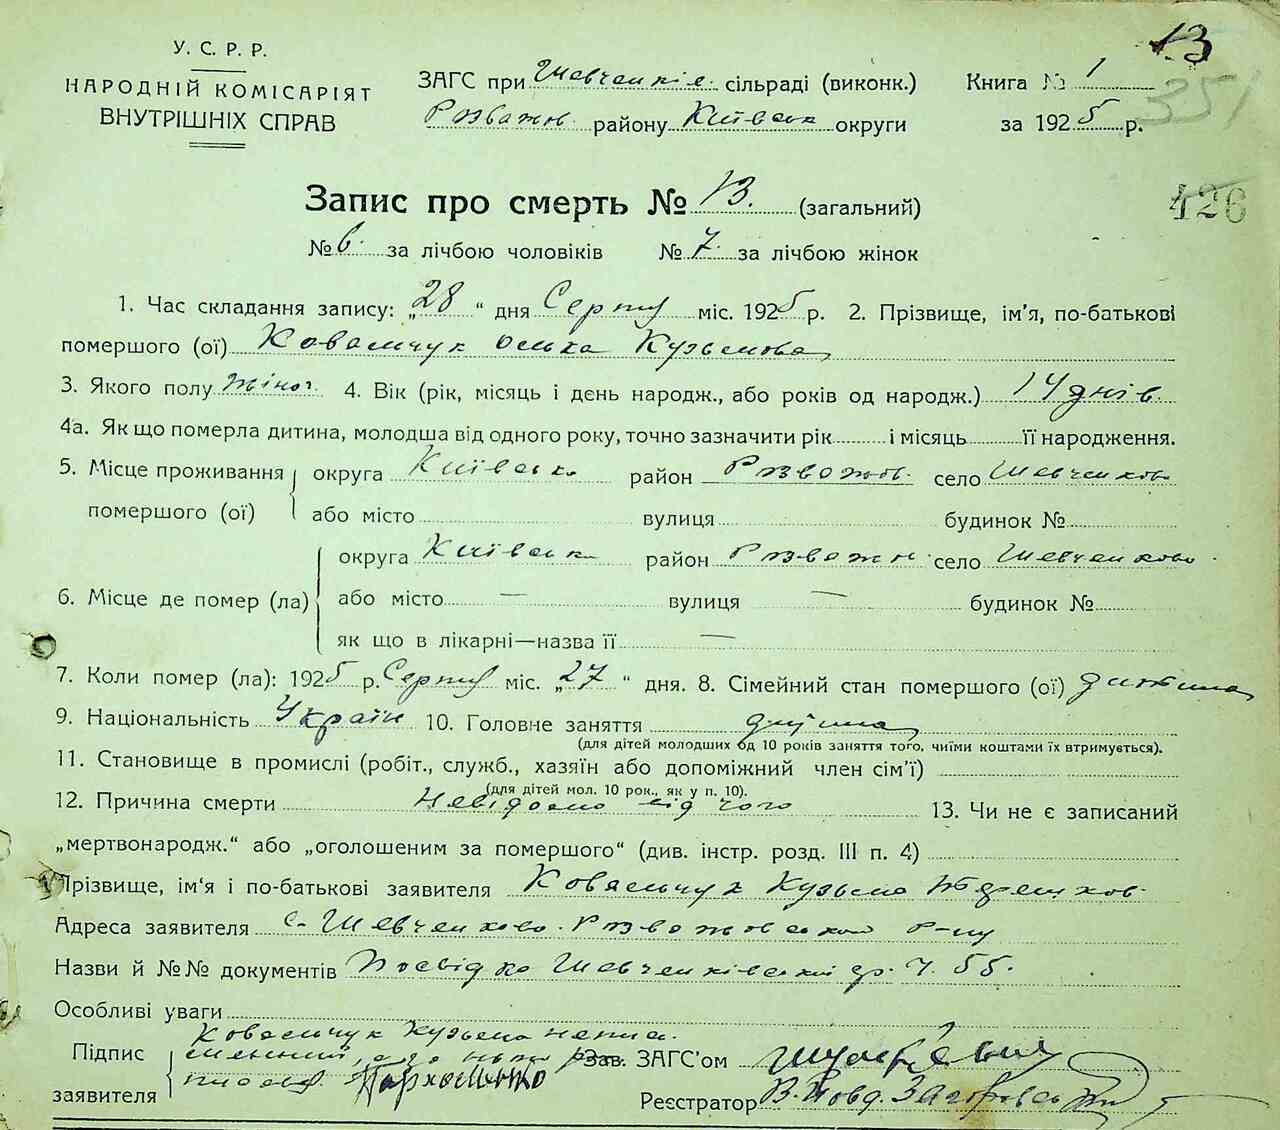 13
351
У. С. Р. Р.
НАРОДНІЙ КОМІСАРІЯТ
ВНУТРІШНІХ СПРАВ
ЗАГС при Шевченків. сільраді (виконк.)
Розважів. району Київськ округи
Книга № 1
за 1925 р.
426
Запис про смерть № 13. (загальний)
№ 6. за лічбою чоловіків № 7. за лічбою жінок
1. Час складання запису: „28“ дня Серпн міс. 1925 р. 2. Прізвище, ім’я, по-батькові
помершого (ої) Ковальчук Олька Кузьмова
3. Якого полу жіноч. 4. Вік (рік, місяць і день народж., або років од народж.) 14 днів.
4а. Як що померла дитина, молодша від одного року, точно зазначити рік і місяць її народження.
5. Місце проживання помершого (ої) округа Київсько район Розважов. село Шевченково
або місто вулиця будинок №
6. Місце де помер (ла) округа Київськ район Розважн село Шевченково
або місто — вулиця — будинок №
як що в лікарні—назва її —
7. Коли помер (ла): 1925 р. Серпн міс. „27“ дня. 8. Сімейний стан помершого (ої) дитина
9. Національність Україн 10. Головне заняття
(для дітей молодших од 10 років заняття того, чиїми коштами їх втримується).
11. Становище в промислі (робіт., служб., хазяїн або допоміжний член сім’ї)
(для дітей мол. 10 рок., як у п. 10).
12. Причина смерти Невідомо від чого 13. Чи не є записаний
„мертвонародж.“ або „оголошеним за помершого“ (див. інстр. розд. III п. 4)
Прізвище, ім’я і по-батькові заявителя Ковальчук Кузьма
Адреса заявителя с. Шевченково. Розважовського р-ну
Назви й №№ документів Посвідка Шевченківської ч. 55.
Особливі уваги
Підпис заявителя Ковальчук Кузьма
Пархоменко
Зав. ЗАГС’ом
Реєстратор